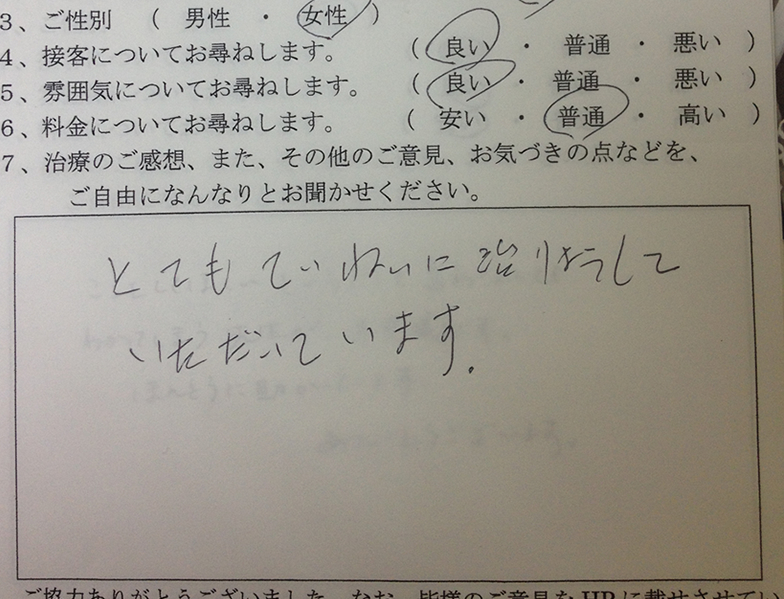 3、ご性別 ( 男性 ・ 女性 )
4、接客についてお尋ねします。 ( 良い ・ 普通 ・ 悪い )
5、雰囲気についてお尋ねします。 ( 良い ・ 普通 ・ 悪い )
6、料金についてお尋ねします。 ( 安い ・ 普通 ・ 高い )
7、治療のご感想、また、その他のご意見、お気づきの点などを、
ご自由になんなりとお聞かせください。
とてもていねいに治りょうして
いただいています。
ご協力ありがとうございました。なお、皆様のご意見をHPに載せさせてい